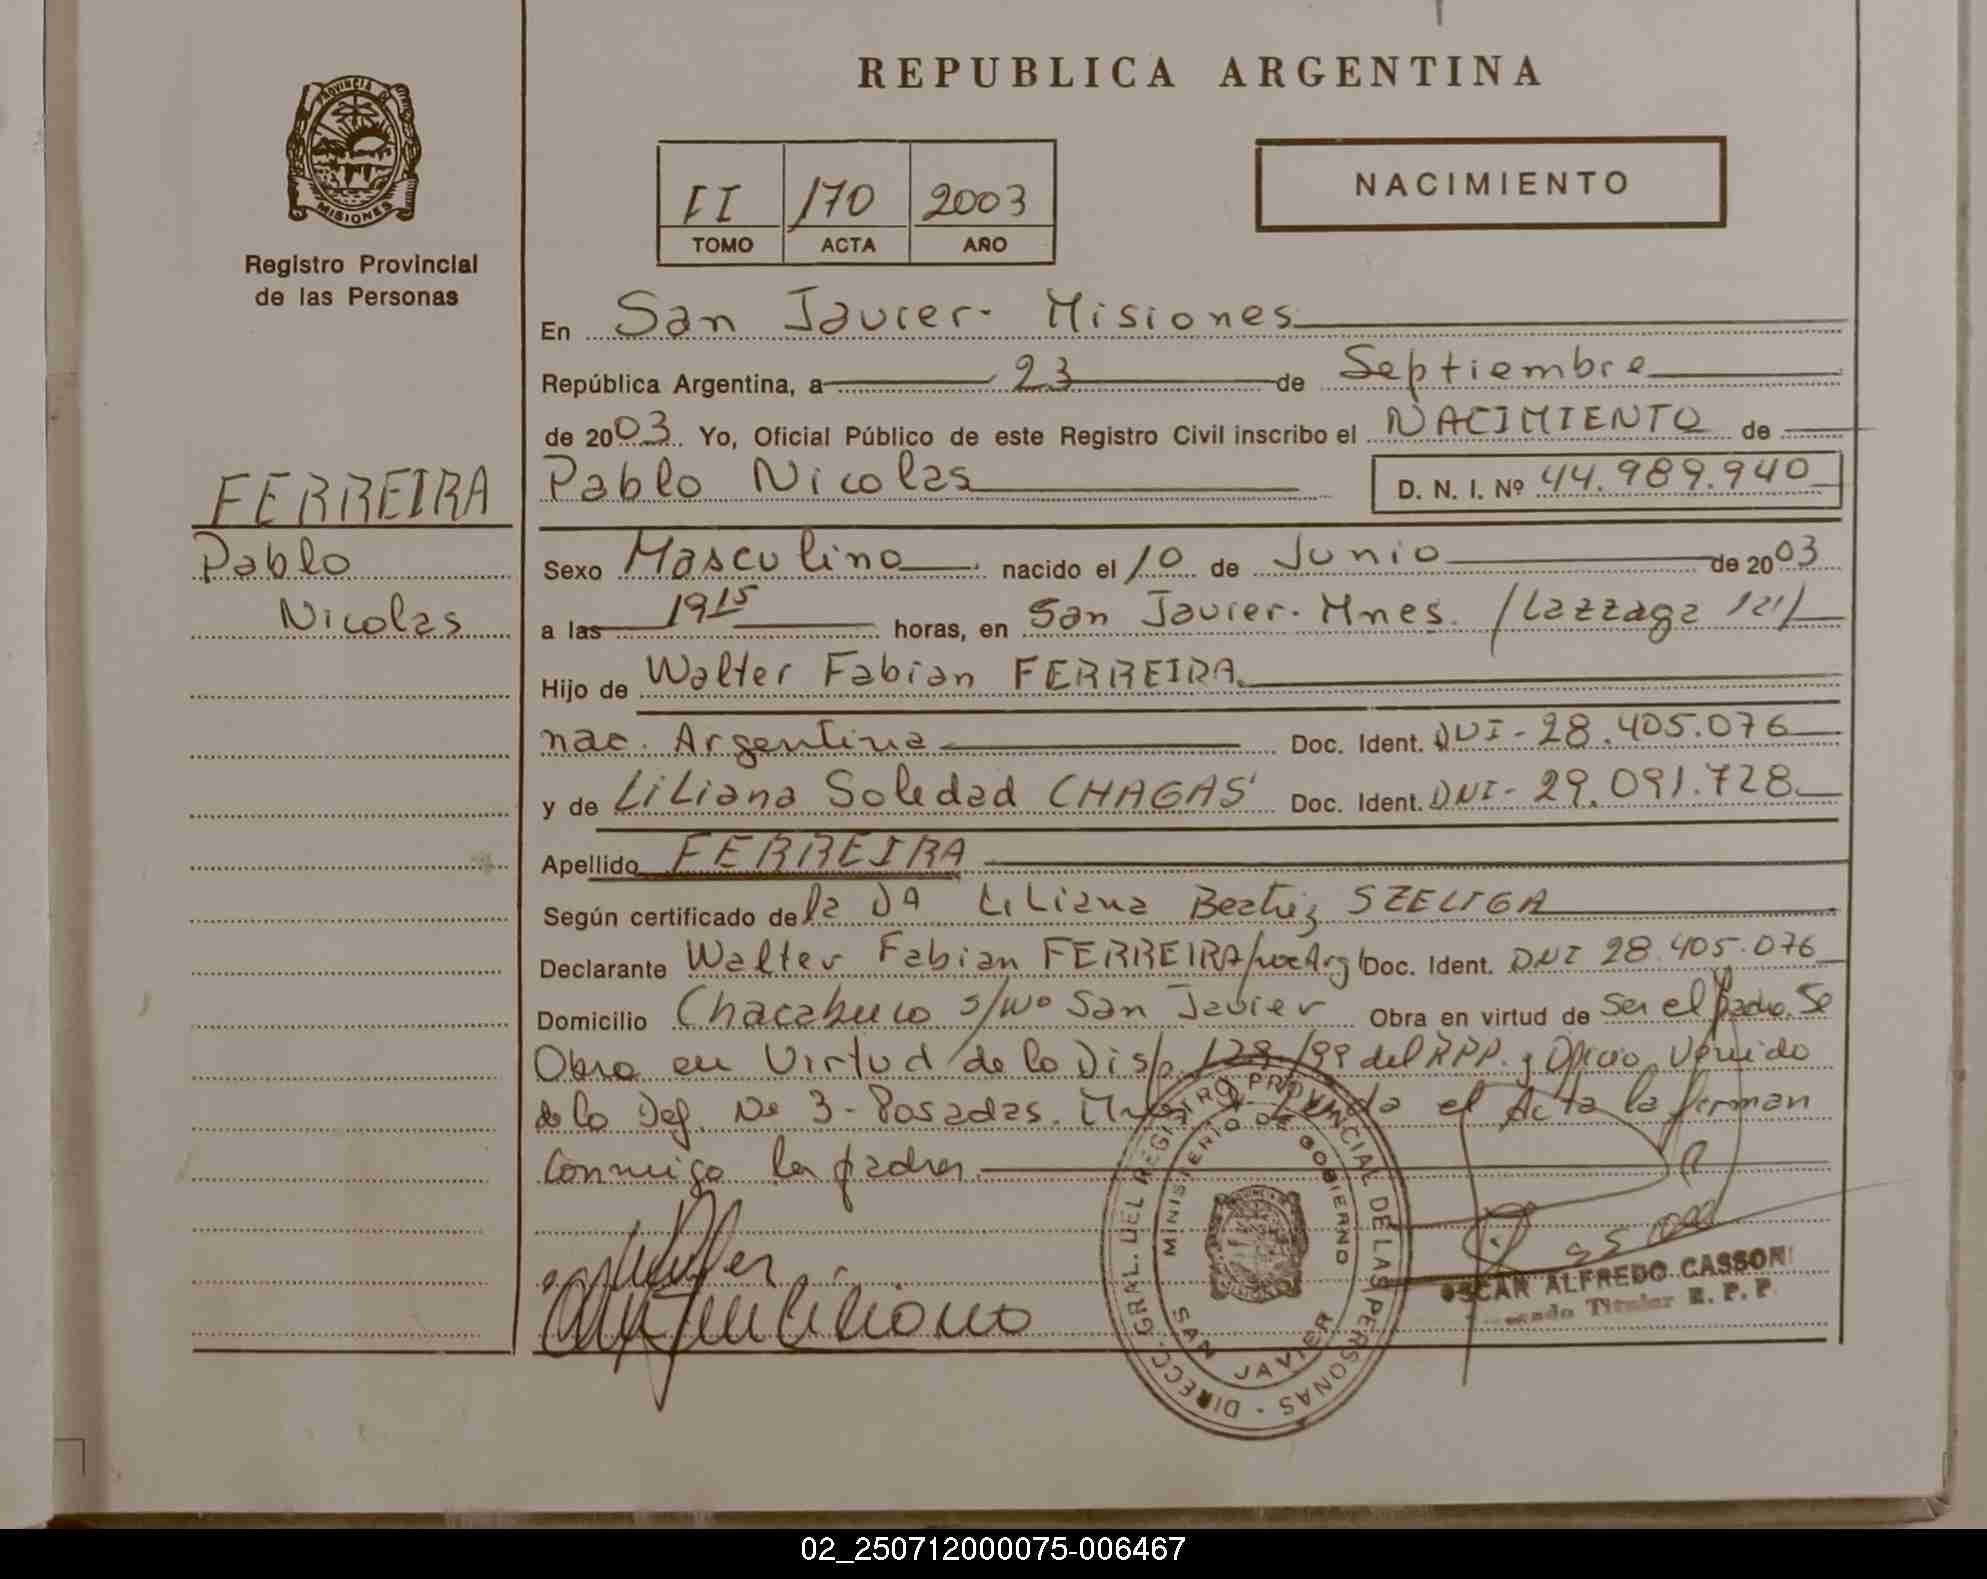 REPUBLICA ARGENTINA
PROVINCIA DE
MISIONES
Registro Provincial
de las Personas
II 170 2003
TOMO ACTA AÑO
NACIMIENTO
En San Javier - Misiones
República Argentina, a 23 de Septiembre
de 2003. Yo, Oficial Público de este Registro Civil inscribo el NACIMIENTO de
Pablo Nicolas D. N. I. Nº 44.989.940
FERREIRA
Pablo
Nicolas
Sexo Masculino nacido el 10 de Junio de 2003
a las 1915 horas, en San Javier - Mnes. /Lazzaga 121/
Hijo de Walter Fabian FERREIRA
nac. Argentina Doc. Ident. DNI - 28.405.076
y de Liliana Soledad CHAGAS Doc. Ident. DNI - 29.091.728
Apellido FERREIRA
Según certificado de la DA Liliana Beatriz SZELIGA
Declarante Walter Fabian FERREIRA/nac Arg/ Doc. Ident. DNI 28.405.076
Domicilio Chacabuco s/Nº San Javier Obra en virtud de ser el padre. Se
Obra en Virtud de la Disp. 128/99 del RPP. y Oficio Venido
de la Def. Nº 3 - Posadas. el Acta la firman
conmigo los padres.
DIRECC. GRAL. DEL REGISTRO PROVINCIAL DE LAS PERSONAS -
MINISTERIO DE GOBIERNO
SAN JAVIER
OSCAR ALFREDO CASSONI
Titular R. P. P.
02_250712000075-006467